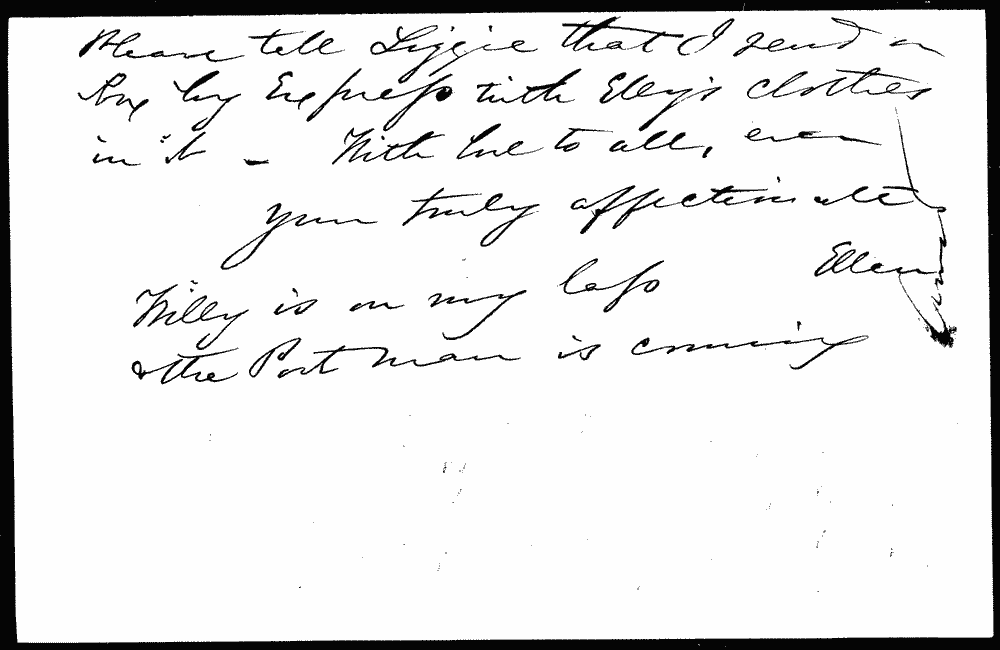 Please tell Lizzie that I send a
Box by Express with Elly's clothes
in it - With love to all, ever
your truly affectionate
Ellen
Willy is on my lap
& the Postman is coming